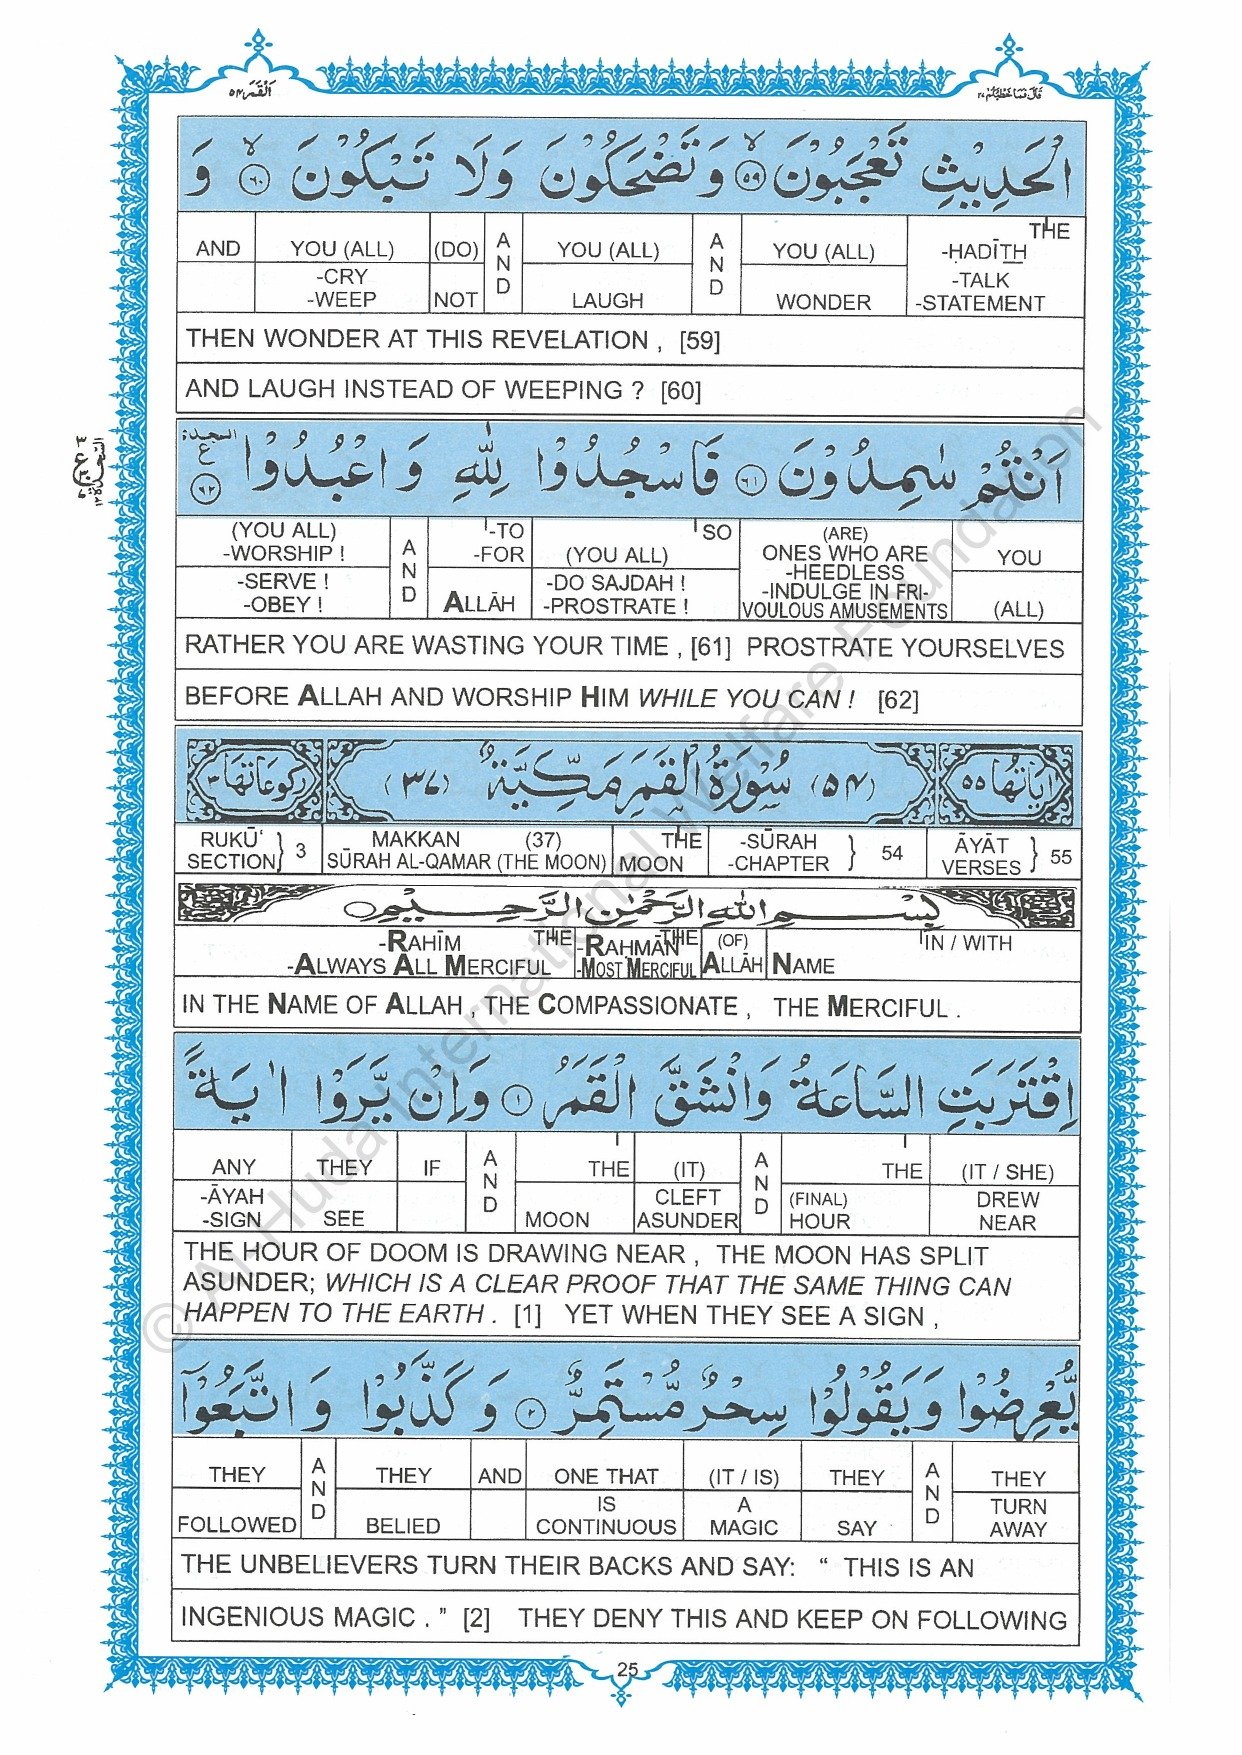 اَلْقَمَر ٥٤
قَالَ فَمَا خَطْبُكُمْ ٢٧
الْحَدِيْثِ تَعْجَبُوْنَ ۙ‏﴿۵۹﴾ وَتَضْحَكُوْنَ وَلَا تَبْكُوْنَ ۙ‏﴿۶۰﴾ وَ
THE -ḤADĪTH -TALK -STATEMENT | YOU (ALL) WONDER | AND | YOU (ALL) LAUGH | AND | (DO) NOT | YOU (ALL) -CRY -WEEP | AND
THEN WONDER AT THIS REVELATION , [59]
AND LAUGH INSTEAD OF WEEPING ? [60]
اَنْتُمْ سٰمِدُوْنَ ‏﴿۶۱﴾ فَاسْجُدُوْا لِلّٰهِ وَاعْبُدُوْا ‏﴿۶۲﴾ السجدة ع
YOU (ALL) | (ARE) ONES WHO ARE -HEEDLESS -INDULGE IN FRI- VOULOUS AMUSEMENTS | SO (YOU ALL) -DO SAJDAH ! -PROSTRATE ! | -TO -FOR ALLĀH | AND | (YOU ALL) -WORSHIP ! -SERVE ! -OBEY !
RATHER YOU ARE WASTING YOUR TIME , [61] PROSTRATE YOURSELVES
BEFORE ALLAH AND WORSHIP HIM WHILE YOU CAN ! [62]
اٰيَاتُهَا ٥٥ (٥٤) سُوْرَةُ الْقَمَرِ مَكِّيَّةٌ (٣٧) رُكُوْعَاتُهَا ٣
ĀYĀT VERSES } 55 | -SŪRAH -CHAPTER } 54 | THE MOON | MAKKAN (37) SŪRAH AL-QAMAR (THE MOON) | RUKŪ‘ SECTION } 3
بِسْمِ اللّٰهِ الرَّحْمٰنِ الرَّحِيْمِ
IN / WITH NAME | (OF) ALLĀH | THE -RAHMĀN -MOST MERCIFUL | THE -RAHĪM -ALWAYS ALL MERCIFUL
IN THE NAME OF ALLAH , THE COMPASSIONATE , THE MERCIFUL .
اِقْتَرَبَتِ السَّاعَةُ وَانْشَقَّ الْقَمَرُ ‏﴿۱﴾ وَاِنْ يَّرَوْا اٰيَةً
(IT / SHE) DREW NEAR | THE (FINAL) HOUR | AND | (IT) CLEFT ASUNDER | THE MOON | AND | IF | THEY SEE | ANY -ĀYAH -SIGN
THE HOUR OF DOOM IS DRAWING NEAR , THE MOON HAS SPLIT
ASUNDER; WHICH IS A CLEAR PROOF THAT THE SAME THING CAN
HAPPEN TO THE EARTH . [1] YET WHEN THEY SEE A SIGN ,
يُّعْرِضُوْا وَيَقُوْلُوْا سِحْرٌ مُّسْتَمِرٌّ ‏﴿۲﴾ وَكَذَّبُوْا وَاتَّبَعُوْٓا
THEY TURN AWAY | AND | THEY SAY | (IT / IS) A MAGIC | ONE THAT IS CONTINUOUS | AND | THEY BELIED | AND | THEY FOLLOWED
THE UNBELIEVERS TURN THEIR BACKS AND SAY: “ THIS IS AN
INGENIOUS MAGIC . ” [2] THEY DENY THIS AND KEEP ON FOLLOWING
25
© Al Huda International Welfare Foundation